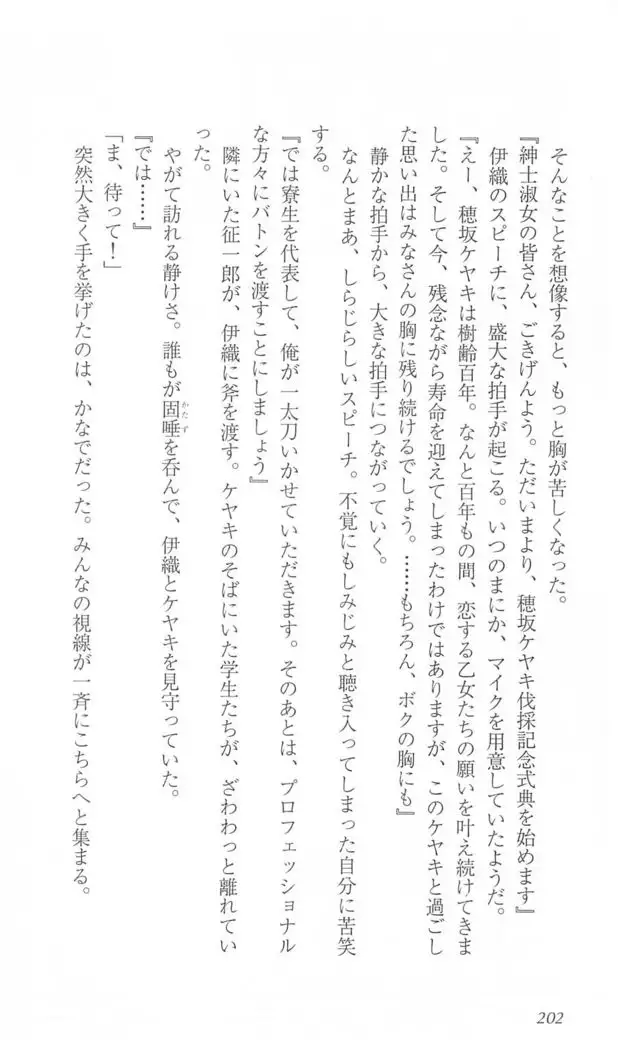 そんなことを想像すると、もっと胸が苦しくなった。
『紳士淑女の皆さん、ごきげんよう。ただいまより、穂坂ケヤキ伐採記念式典を始めます』
伊織のスピーチに、盛大な拍手が起こる。いつのまにか、マイクを用意していたようだ。
『えー、穂坂ケヤキは樹齢百年。なんと百年もの間、恋する乙女たちの願いを叶え続けてきま
した。そして今、残念ながら寿命を迎えてしまったわけではありますが、このケヤキと過ごし
た思い出はみなさんの胸に残り続けるでしょう。……もちろん、ボクの胸にも』
静かな拍手から、大きな拍手につながっていく。
なんとまあ、しらじらしいスピーチ。不覚にもしみじみと聴き入ってしまった自分に苦笑
する。
『では寮生を代表して、俺が一太刀いかせていただきます。そのあとは、プロフェッショナル
な方々にバトンを渡すことにしましょう』
隣にいた征一郎が、伊織に斧を渡す。ケヤキのそばにいた学生たちが、ざわわっと離れてい
った。
やがて訪れる静けさ。誰もが固唾を呑んで、伊織とケヤキを見守っていた。
かたず
『では……』
「ま、待って！」
突然大きく手を挙げたのは、かなでだった。みんなの視線が一斉にこちらへと集まる。
202